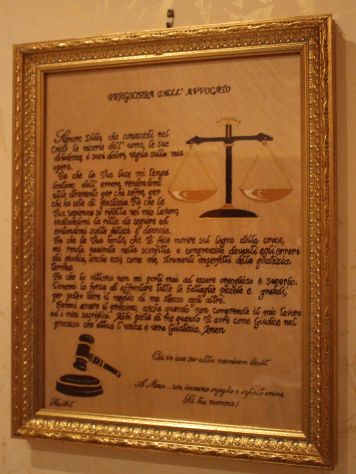 PREGHIERA DELL' AVVOCATO
Signore Iddio, che conoscesti nel
Cristo le miserie dell' uomo, le sue
debolezze, i suoi dolori, vigila sulla mia
opera.
Fa che la Tua luce mi tenga
lontano dall' errore, rendendomi
utile strumento per chi soffre, per
chi ha sete di giustizia. Fa che la
Tua sapienza si rifletta nel mio lavoro,
indicandomi la retta da seguire ed
evitandomi scelte fallaci e dannose.
Fa che la Tua bontà, che Ti fece morire sul legno della croce,
mi renda paziente nella sconfitta e comprensivo davanti agli errori
dei giudici, anche essi come me, strumenti imperfetti della giustizia
terrena.
Fa che la vittoria non mi porti mai ad essere orgoglioso e superbo.
Donami la forza di affrontare tutte le battaglie piccole e grandi,
per poter dare il meglio di me stesso agli altri.
Fammi amare il prossimo, anche quando non comprende il mio lavoro
ed i miei sacrifici. Abbi pietà di me quando Ti avrò come Giudice nel
processo che attua l'unica e vera Giustizia. Amen
Qui in iure suo utitur neminem laedit
A ... con immenso orgoglio e infinito amore
La tua mamma!